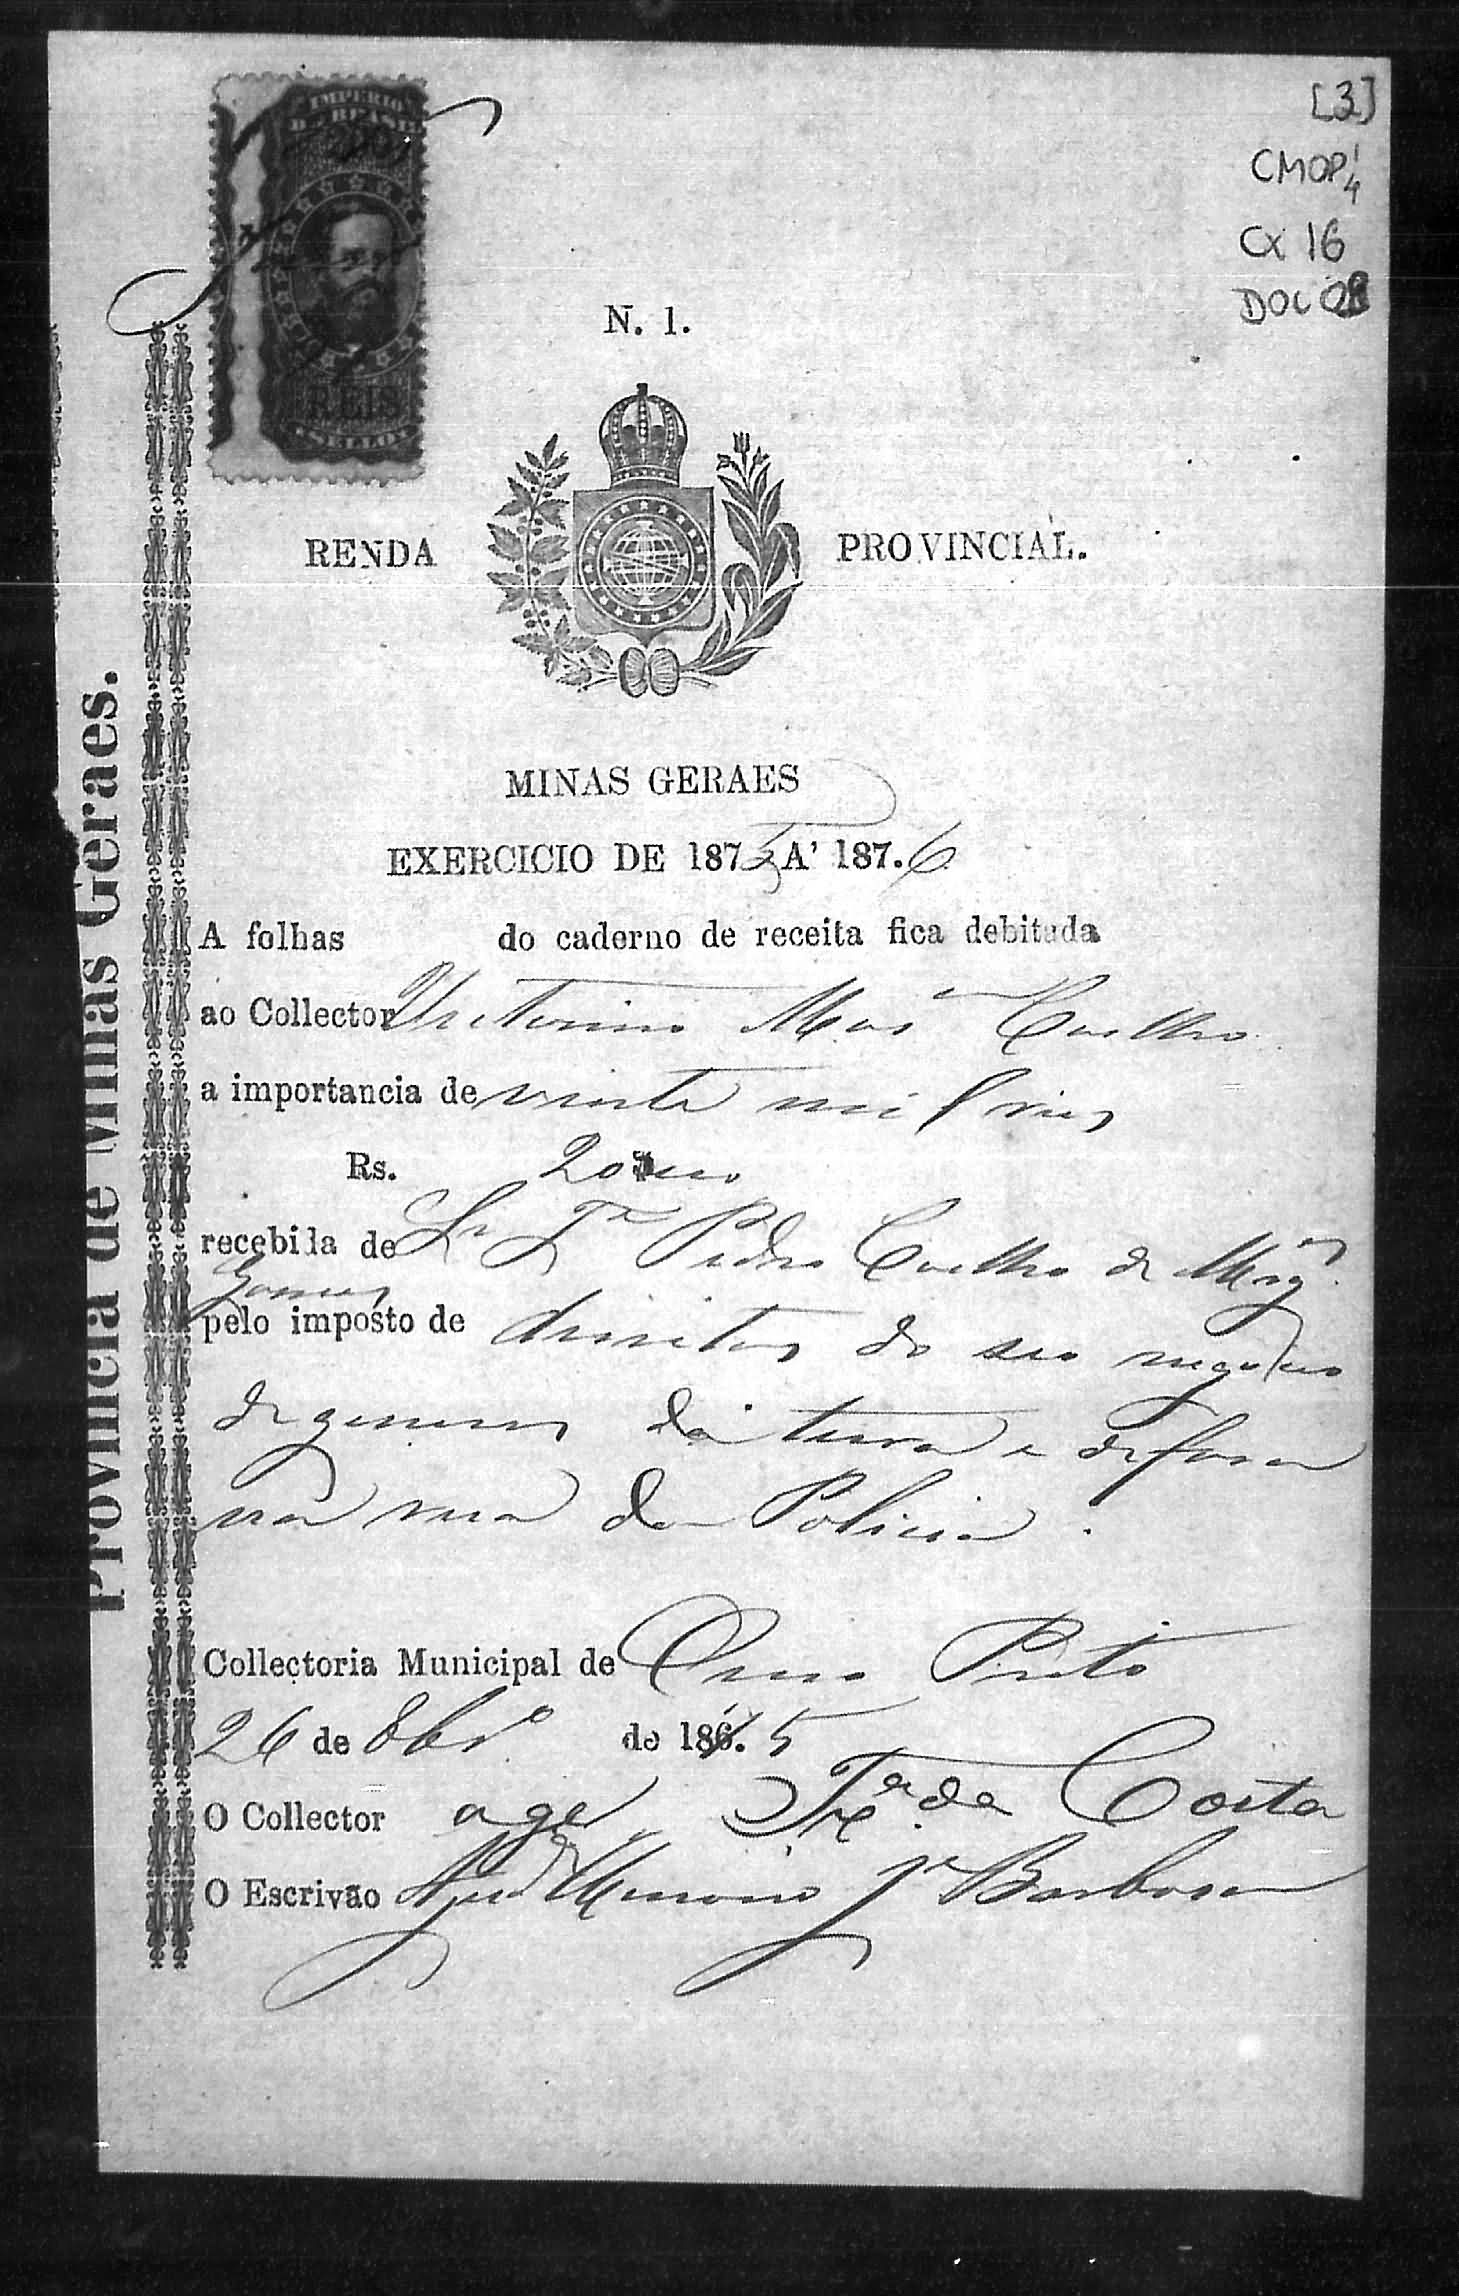 [3]
CMOP 1/4
CX 16
DOC 02
IMPERIO
DO BRASIL
200
REIS
SELLO
N. 1.
RENDA PROVINCIAL.
MINAS GERAES
EXERCICIO DE 1875 A' 187.6
A folhas do caderno de receita fica debitada
ao Collector Victorino Coelho
a importancia de vinte mil reis
Rs. 20
recebida de Pedro Coelho de Mag.es
Gomes
pelo imposto de direitos do seo negocio
de generos da terra e de fora
na rua da Policia.
Collectoria Municipal de Ouro Preto
26 de 8br.o de 186. 5
O Collector age Frª da Costa
O Escrivão Barbosa
Provincia de Minas Geraes.